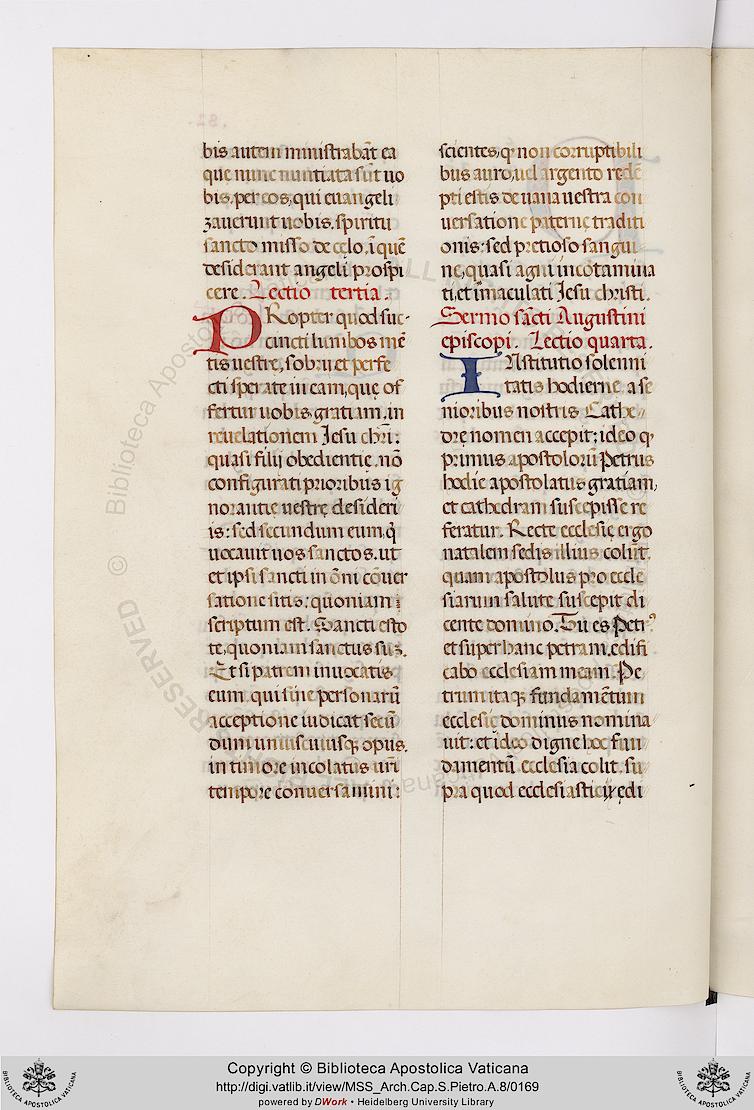 bis autem ministrabāt ea
que nunc nuntiata sūt uo
bis. per eos, qui euangeli
zauerunt uobis. spiritu
sancto misso de celo. ī quē
desiderant angeli prospi
cere. Lectio tertia.
PRopter quod suc-
cincti lumbos mē
tis uestre, sobrii et perfe
cti sperate in eam, quę of
fertur uobis gratiam. in
reuelationem Jesu chri̅:
quasi filij obedientie. nō
configurati prioribus ig
norantię uestrę desideri
is: sed secundum eum. q̇
uocauit uos sanctos. ut
et ipsi sancti in ōni cōuer
satione sitis: quoniam
scriptum est. Sancti esto
te, quoniam sanctus suꝫ.
Et si patrem inuocatis
eum. qui sine personarū
acceptione iudicat secū
dum uniuscuiusqꝫ opus.
in timore incolatus ur̄i
tempore conuersamini:
scientes, ꝙ non corruptibili
bus auro, uel argento redē
pti estis de uana uestra con
uersatione paternę traditi
onis: sed pretioso sangui
ne, quasi agni incōtamina
ti, et īmaculati Jesu christi.
Sermo sācti Augustini
episcopi. Lectio quarta.
INstitutio solenni
tatis hodierne a se
nioribus nostris Cathe
drę nomen accepit: ideo ꝙ
primus apostolorū Petrus
hodie apostolatus gratiam,
et cathedram suscepisse re
feratur. Recte ecclesię ergo
natalem sedis illius colūt.
quam apostolus pro eccle
siarum salute suscepit di
cente domino. Tu es Petrꝰ
et super hanc petram. edifi
cabo ecclesiam meam. Pe
trum itaqꝫ fundamētum
ecclesię dominus nomina
uit: et ideo digne hoc fun
damentū ecclesia colit. su
pra quod ecclesiastici ędi
Copyright © Biblioteca Apostolica Vaticana
http://digi.vatlib.it/view/MSS_Arch.Cap.S.Pietro.A.8/0169
powered by DWork • Heidelberg University Library